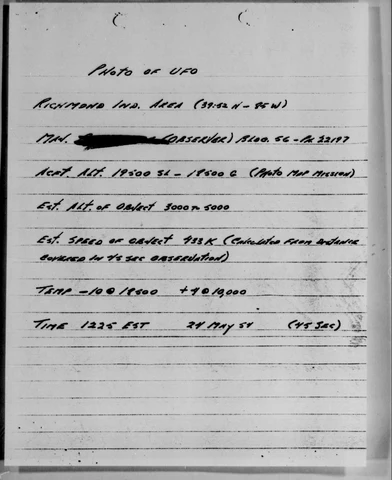 PHOTO OF UFO
RICHMOND IND. AREA (39:52 N - 85 W)
MAJ. (OBSERVER) BLDG. 56 - PH 22197
ACFT ALT. 19500 SL - 18500 G (PHOTO MAP MISSION)
EST. ALT. OF OBJECT 3000 TO 5000
EST. SPEED OF OBJECT 433 K (CALCULATED FROM DISTANCE
COVERED IN 45 SEC OBSERVATION)
TEMP -10 @ 18500 +4 @ 10,000
TIME 1225 EST 24 MAY 54 (45 SEC)